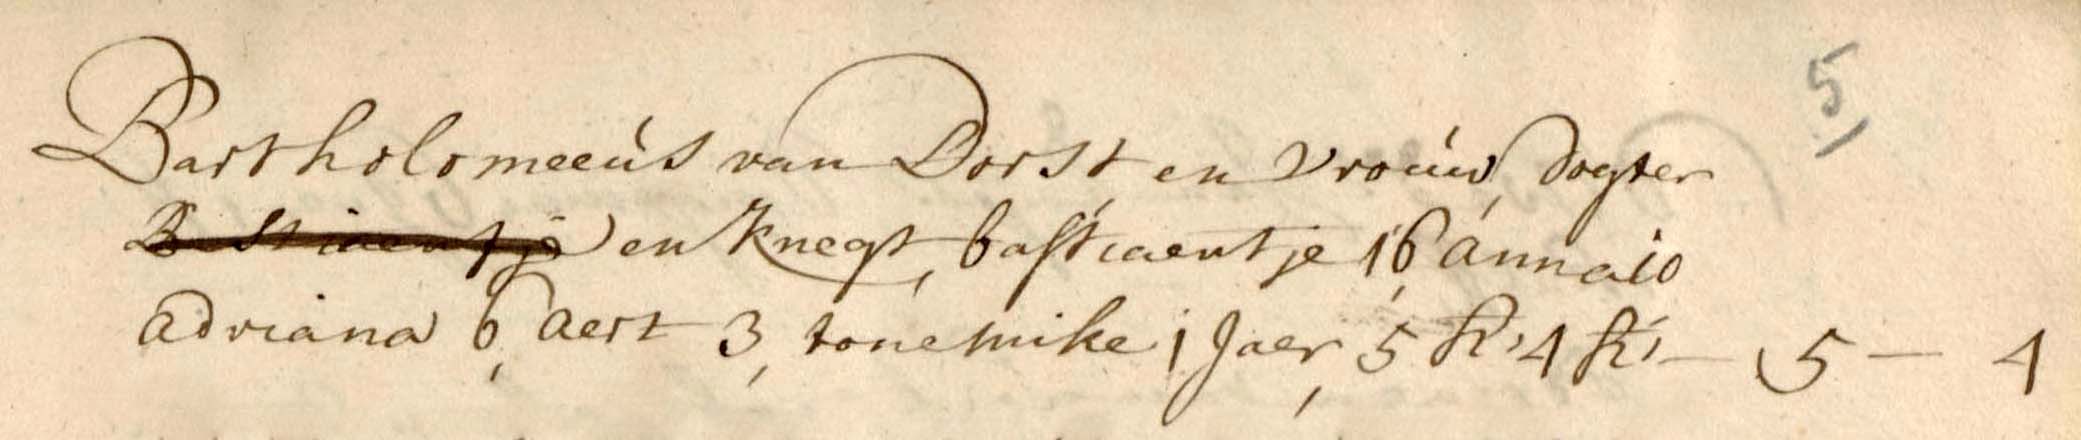 5
Bartholomeeus van Dorst en vrouw, dogter
Bastiaentje en knegt, bastiaentje 16, anna 10
adriana 6, aert 3, tonemike 1 Jaer, 5 K, 4 K, — 5 — 4